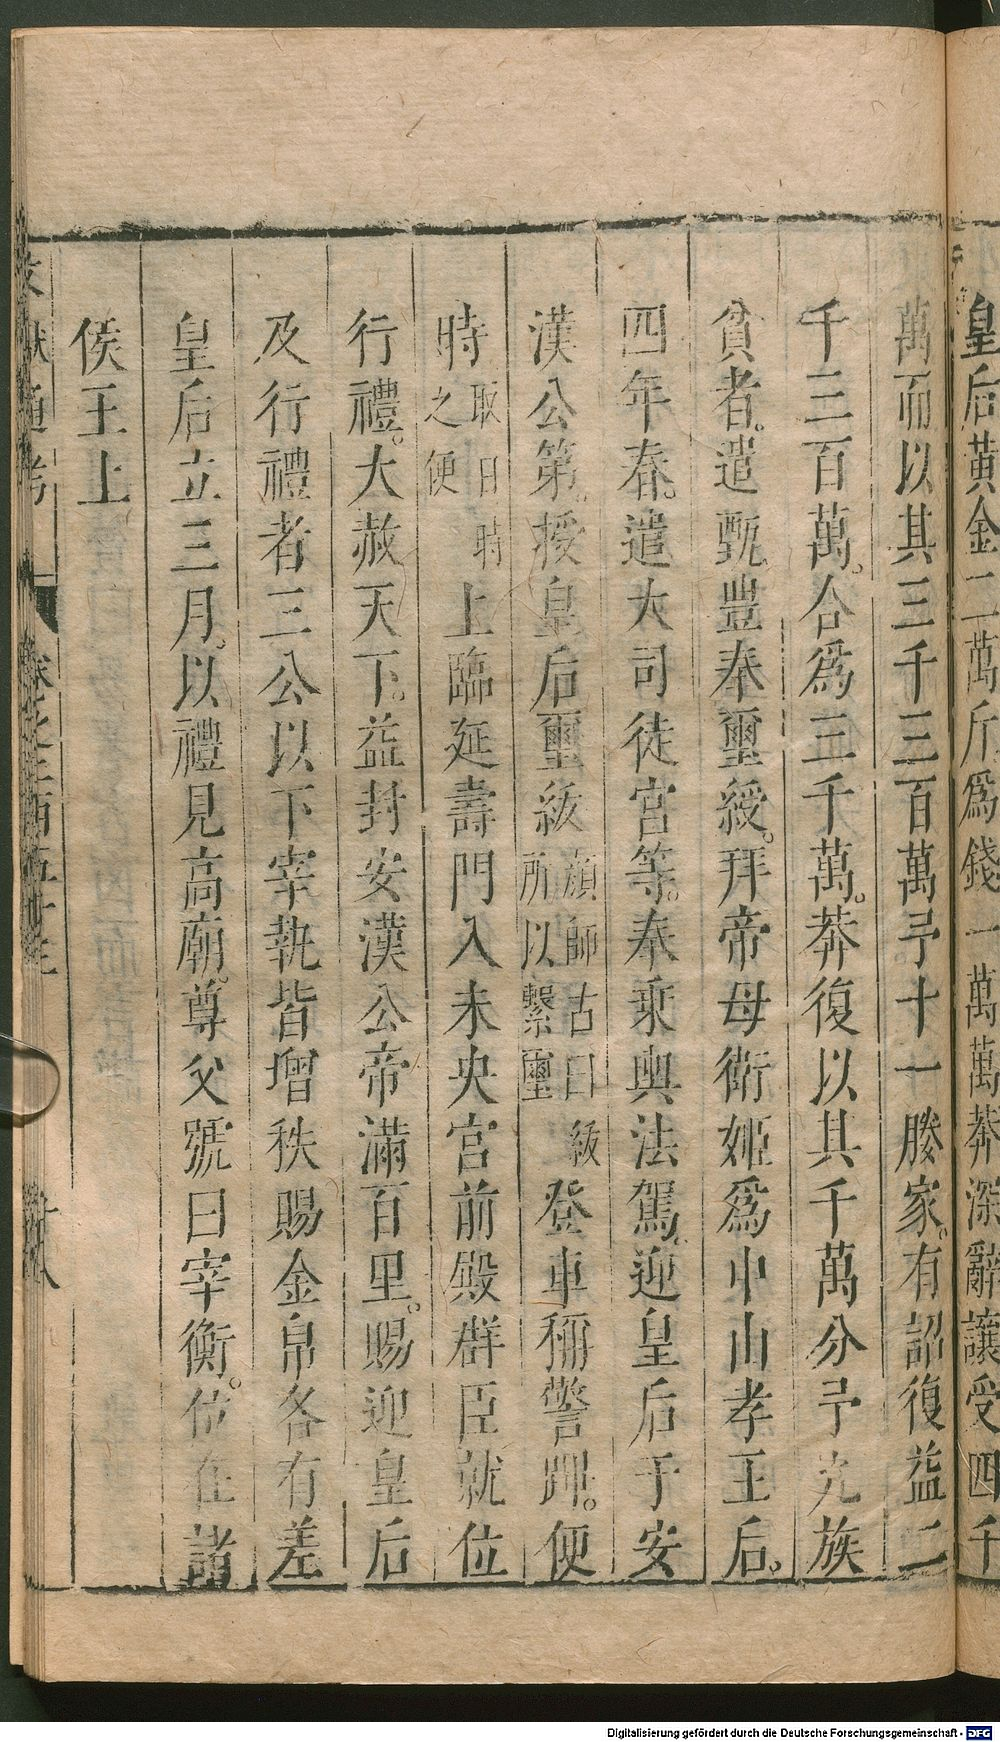 皇后黃金二萬斤爲錢一萬萬莽深辭讓受四千
萬而以其三千三百萬予十一媵家。有詔復益二
千三百萬。合爲三千萬。莽復以其千萬分予九族
貧者。遣甄豐奉璽綬。拜帝母衛姬爲中山孝王后。
四年春。遣大司徒宮等。奉乗輿法駕。迎皇后于安
漢公第。授皇后璽紱顔師古曰紱所以繫璽登車稱警蹕。便
時取日時之便上臨延壽門入未央宮前殿群臣就位
行禮。大赦天下。益封安漢公帝滿百里。賜迎皇后
及行禮者三公以下宰執皆增秩賜金帛各有差
皇后立三月。以禮見高廟。尊父號曰宰衡。位在諸
侯王上
文獻通考
Digitalisierung gefördert durch die Deutsche Forschungsgemeinschaft - DFG